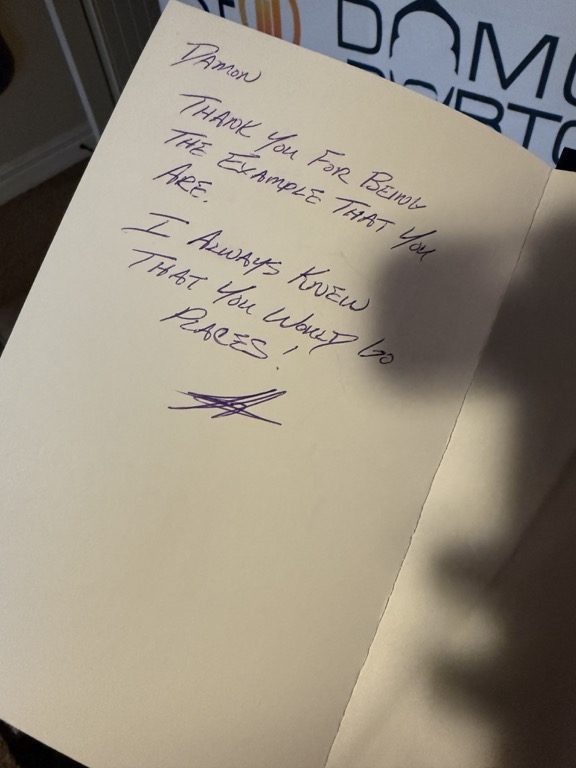 DAMON
THANK YOU FOR BEING
THE EXAMPLE THAT YOU
ARE.
I ALWAYS KNEW
THAT YOU WOULD GO
PLACES!